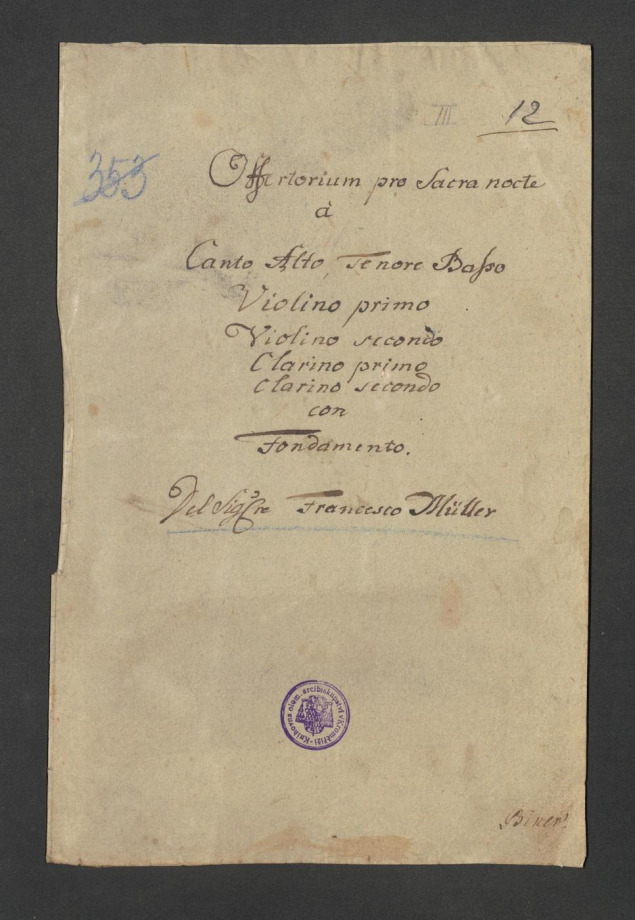 III
12
353
Offertorium pro Sacra nocte
à
Canto, Alto, Tenore Baſso
Violino primo
Violino secondo
Clarino primo
Clarino secondo
con
Fondamento.
Del Sig:re Francesco Müller
Knihovna olom. arcibiskupství v Kroměříži